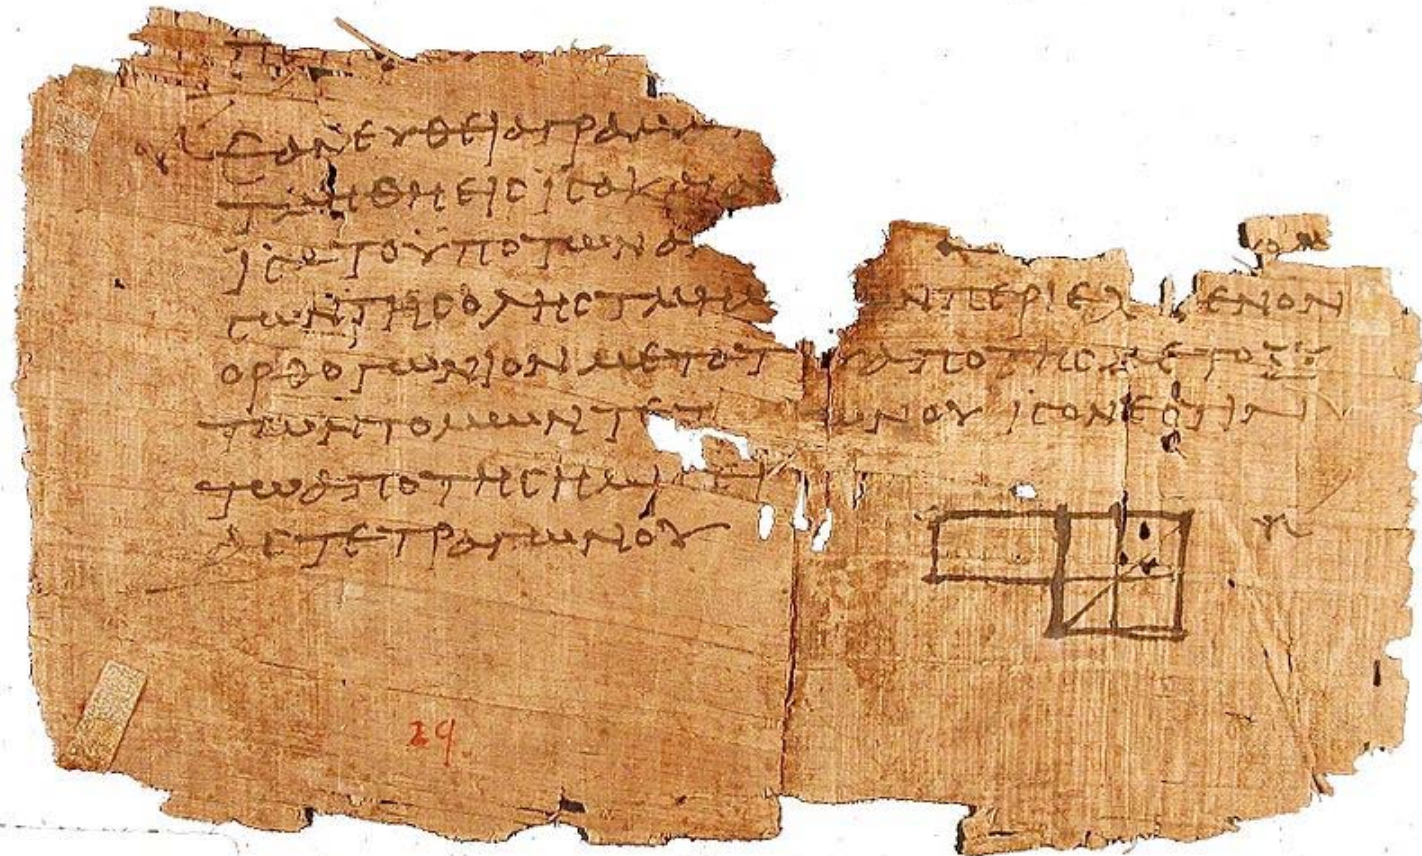 ΕΑΝ ΕΥΘΕΙΑ ΓΡΑΜ
ΤΜΗΘΗ ΕΙϹ ΙϹΑ Κ
ΙϹΑ ΤΟ ΫΠΟ ΤΩΝ ΑΝ
ϹΩΝ ΤΗϹ ΟΛΗϹ ΤΜΗΜ ΩΝ ΠΕΡΙΕΧ ΜΕΝΟΝ
ΟΡΘΟΓΩΝΙΟΝ ΜΕΤΑ Τ ΑΠΟ ΤΗϹ ΜΕΤΟΞΥ
ΤΩΝ ΤΟΜΩΝ ΤΕΤ ΩΝΟΥ ΙϹΟΝ ΕϹΤΙΝ
ΤΩ ΑΠΟ ΤΗϹ ΗΜΙ
ΑϹ ΤΕΤΡΑΓΩΝΟΥ
29.